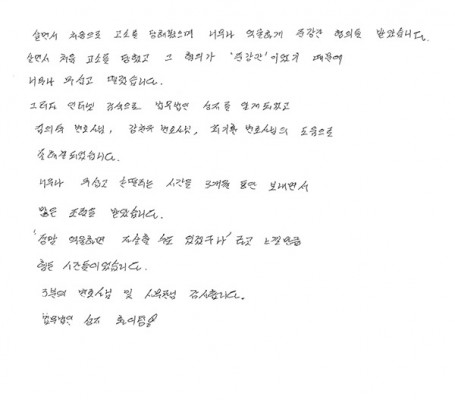 살면서 처음으로 고소를 당해봤으며 너무나 억울하게 준강간 혐의를 받았습니다.
살면서 처음 고소를 당했고 그 혐의가 '준강간'이었기 때문에
너무나 무섭고 떨렸습니다.
그러다 인터넷 검색으로 법무법인 를 알게되었고
변호사님, 변호사님, 변호사님의 도움으로
잘 해결되었습니다.
너무나 무섭고 손떨리는 시간을 3개월 동안 보내면서
많은 조력을 받았습니다.
'정말 억울하면 자살할 수도 있겠구나' 라고 느낄만큼
힘든 시간들이었습니다.
3분의 변호사님 및 사무장님 감사합니다.
법무법인 최고